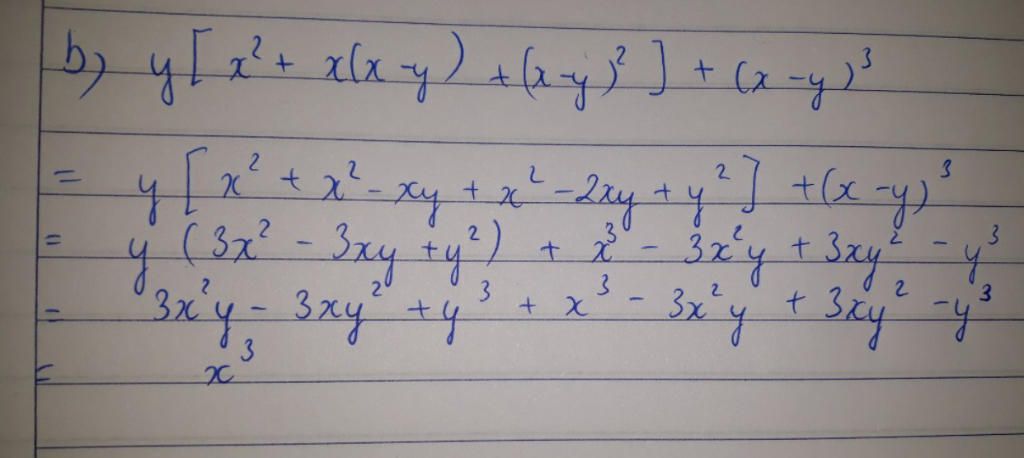 b) y[x² + x(x-y) + (x-y)²] + (x-y)³
= y[x² + x² - xy + x² - 2xy + y²] + (x-y)³
= y(3x² - 3xy + y²) + x³ - 3x²y + 3xy² - y³
= 3x²y - 3xy² + y³ + x³ - 3x²y + 3xy² - y³
= x³